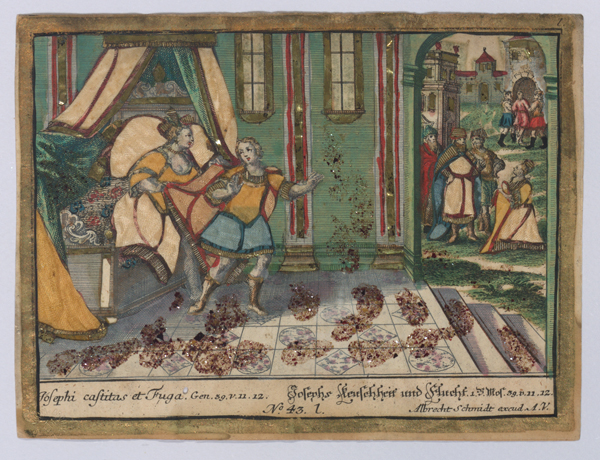 Josephi castitas et Fuga. Gen. 39. v. 11. 12.
Josephs Keuschheit und Flucht. 1. B. Mos. 39. v. 11. 12.
No 43. l.
Albrecht Schmidt excud. A. V.